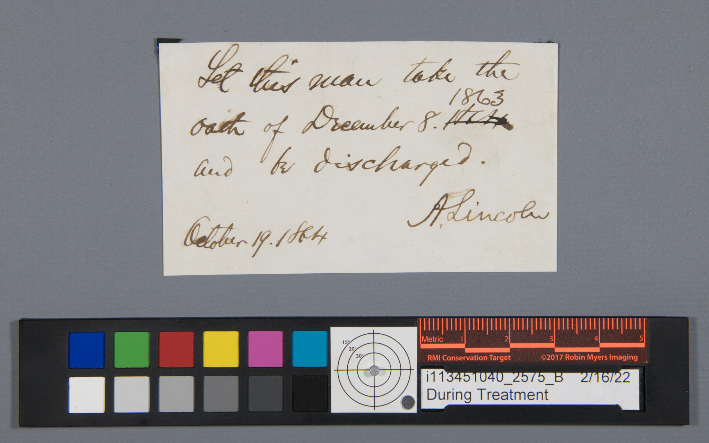 Let this man take the
1863
oath of December 8. 1864
and be discharged.
A. Lincoln
October 19. 1864
Metric 1 2 3 4 5
RMI Conservation Target ©2017 Robin Myers Imaging
i113451040_2575_B 2/16/22
During Treatment